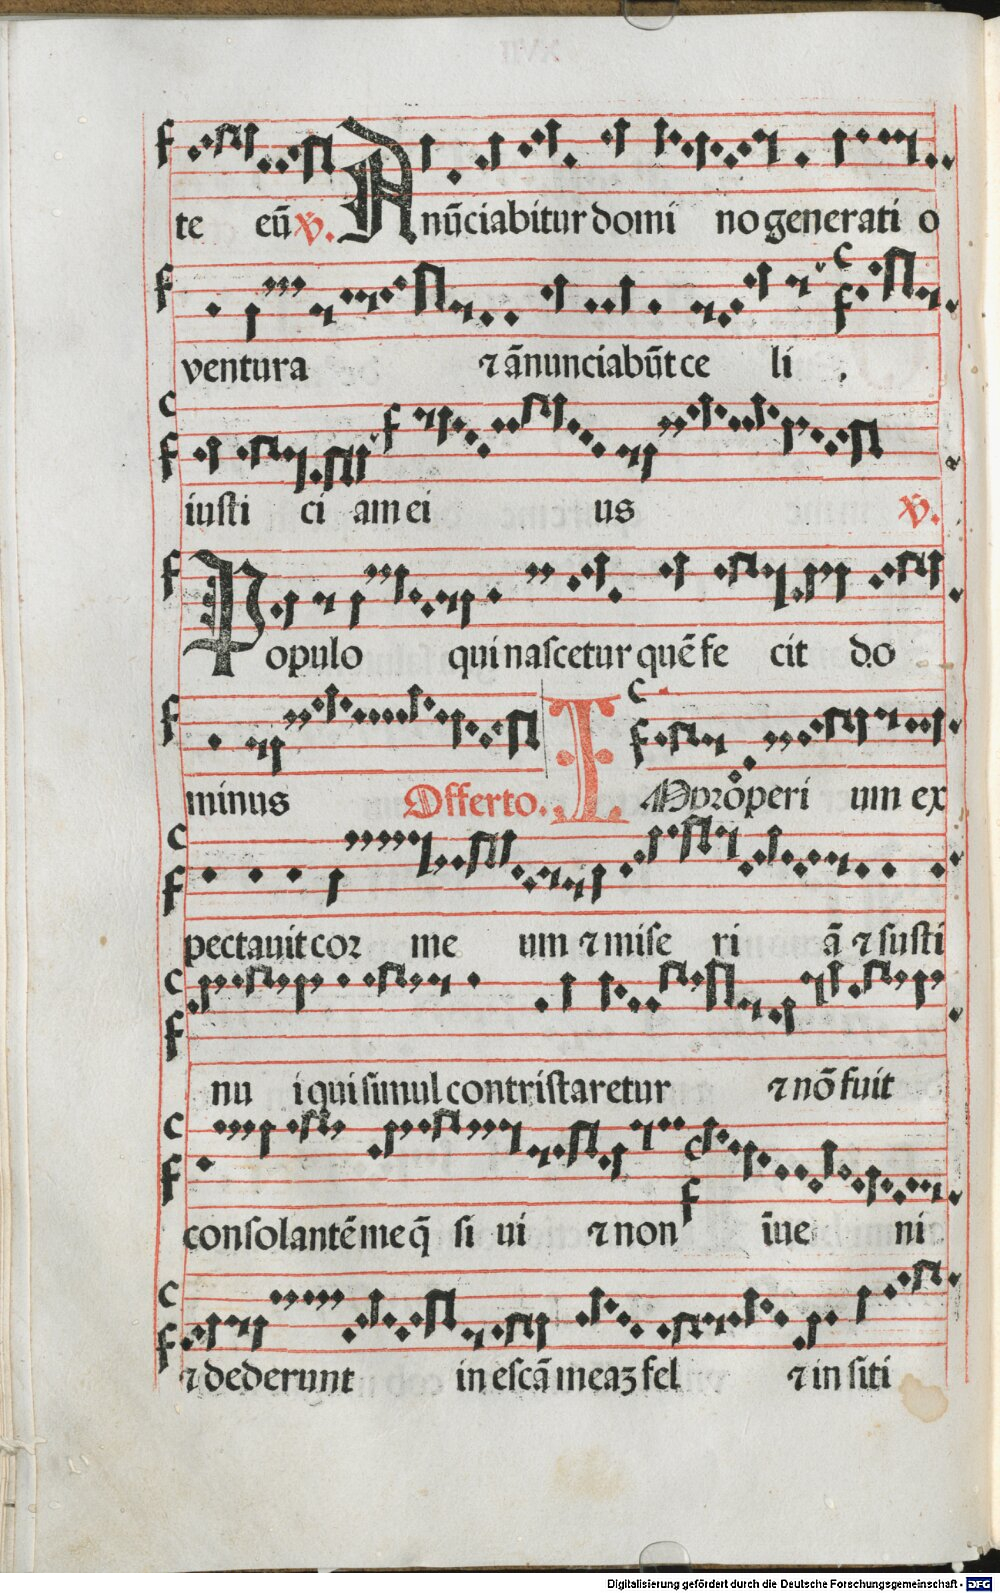 te eū ℣. Anūciabitur domi no generati o
ventura ⁊ ānunciabūt ce li .
iusti ci am ei us ℣.
Populo qui nascetur quē fe cit do
minus Offerto. IMproperi um ex
pectauit cor me um ⁊ mise ri ā ⁊ susti
nu i qui simul contristaretur ⁊ nō fuit
consolantē me q̄ si ui ⁊ non īue ni
⁊ dederunt in escā meaꝫ fel ⁊ in siti
Digitalisierung gefördert durch die Deutsche Forschungsgemeinschaft - DFG